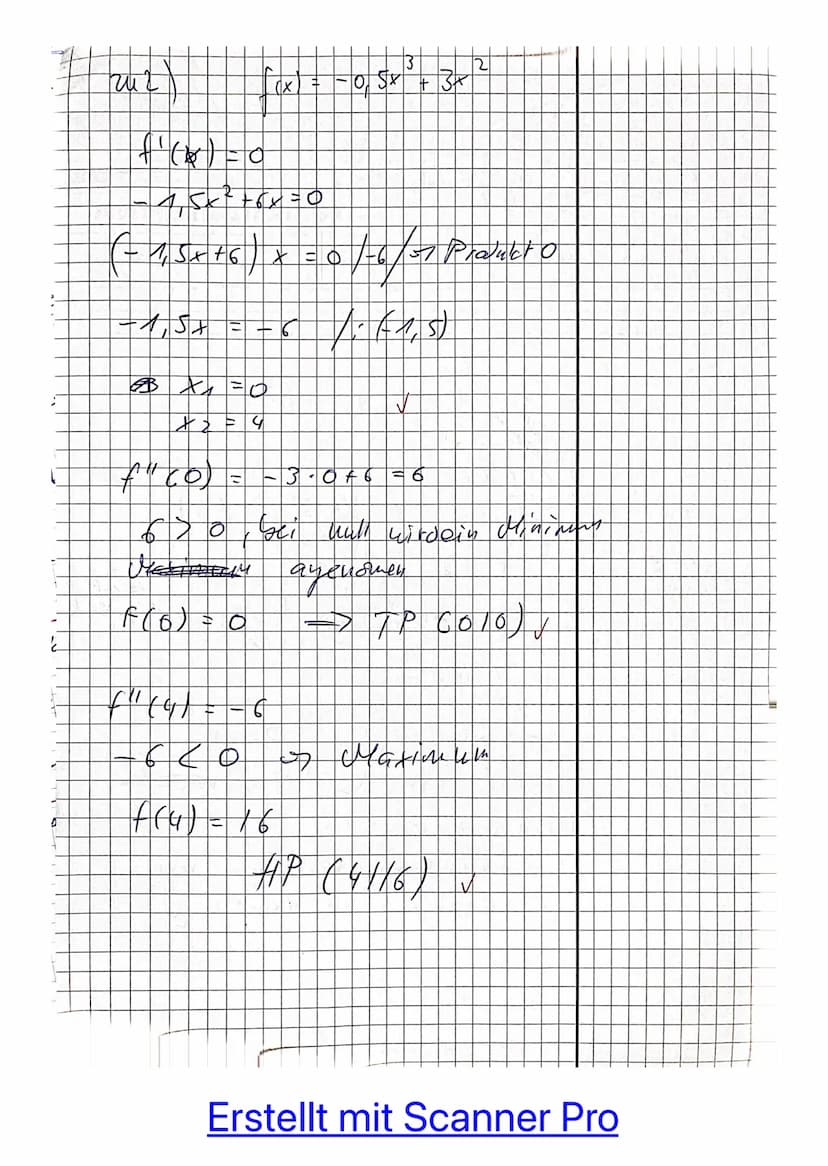 zu 2) f(x) = -0,5x³ + 3x²
f'(x) = 0
-1,5x² + 6x = 0
(-1,5x+6) x = 0 /-6/ => Produkt 0
-1,5x = -6 /:(-1,5)
x1 = 0 ✓
x2 = 4
f''(0) = -3·0+6 = 6
6 > 0, bei null wird ein Minimum
agenomen
f(0) = 0 => TP (0|0) ✓
f''(4) = -6
-6 < 0 => Maximum
f(4) = 16
HP (4|16) ✓
Erstellt mit Scanner Pro